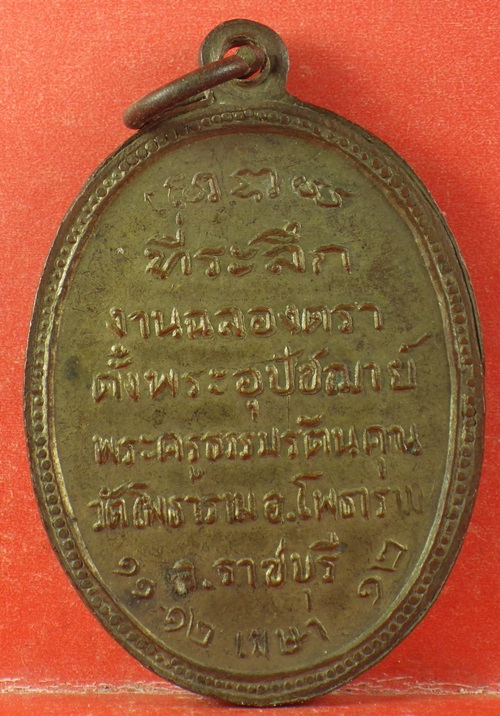 ที่ระลึก
งานฉลองตรา
ตั้งพระอุปัชฌาย์
พระครูธรรมรัตนคุณ
วัดโพธาราม อ.โพธาราม
จ.ราชบุรี
๑๑ ๑๒ เมษา ๑๒